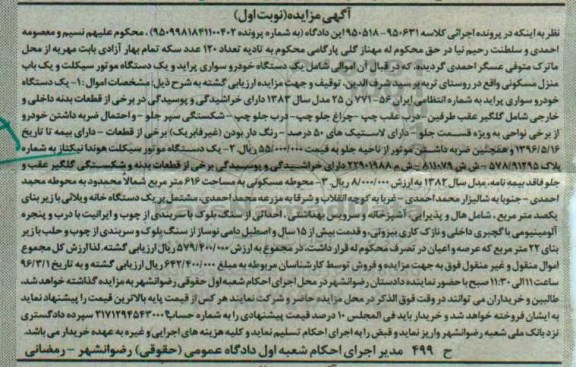 آگهی مزایده(نوبت اول)
نظر به اینکه در پرونده اجرائی کلاسه ۹۵۰۶۳۱-۹۵۰۵۱۸ این دادگاه (به شماره پرونده ۹۵۰۹۹۸۱۸۴۱۱۰۰۴۰۲)، محکوم علیهم نسیم و معصومه
احمدی و سلطنت رحیم نیا در حق محکوم له مهناز گلی پارگامی محکوم به تادیه تعداد ۱۲۰ عدد سکه تمام بهار آزادی بابت مهریه از محل
ماترک متوفی عسگر احمدی گردیده، که در قبال آن اموالی شامل یک دستگاه خودرو سواری پراید و یک دستگاه موتور سیکلت و یک باب
منزل مسکونی واقع در روستای تربه پرسمسار شرف الدین، توقیف و جهت مزایده ارزیابی گشته به شرح ذیل: مشخصات اموال: ۱- یک دستگاه
خودرو سواری پراید به شماره انتظامی ایران ۵۶-۷۷۱ ن ۲۵ مدل سال ۱۳۸۳ دارای خراشیدگی و پوسیدگی در برخی از قطعات بدنه داخلی و
خارجی شامل گلگیر عقب طرفین - درب عقب چپ - چراغ جلو چپ - درب جلو چپ - شکستگی سپر جلو - و احتمال ضربه داشتن خودرو
از برخی نواحی به ویژه قسمت جلو - دارای لاستیک های ۵۰ درصد - رنگ دار بودن (غیرفابریک) برخی از قطعات - دارای بیمه تا تاریخ
۱۳۹۶/۵/۱۶ و همچنین ضربه داشتن موتور از ناحیه جلو به قیمت ۵۵/۰۰۰/۰۰۰ ریال. ۲- یک دستگاه موتور سیکلت هوندا نیکتاز به شماره
پلاک ۵۷۸/۹۱۲۹۵ - ش ش ۸۱۱۰۷۹ - ش م ۲۲۹۰۱۹۸۸ دارای خراشیدگی و پوسیدگی برخی از قطعات بدنه و شکستگی گلگیر عقب و
جلو فاقد بیمه نامه، مدل سال ۱۳۸۲ به ارزش ۸/۰۰۰/۰۰۰ ریال. ۳- محوطه مسکونی به مساحت ۶۱۶ متر مربع شمالاً محدود به محوطه محمد
احمدی - جنوبا به شالیزار محمد احمدی - غربا به کوچه انقلاب و شرقا به مزرعه محمد احمدی، مشتمل بر یک دستگاه خانه ویلائی با زیر بنای
یکصد متر مربع، شامل هال و پذیرایی، آشپزخانه و سرویس بهداشتی، احداثی از سنگ بلوک با سربندی از چوب و ایرانیت با درب و پنجره
آلومینیومی با گچبری داخلی و نازک کاری بیرونی، و قدمت بیش از ۱۵ سال و اصطبل دامی نوساز از سنگ بلوک و سربندی از چوب و حلب با زیر
بنای ۲۲ متر مربع که عرصه و اعیان در تصرف محکوم له قرار داشت، در مجموع به ارزش ۵۷۹/۴۰۰/۰۰۰ ریال ارزیابی گشته. لذا ارزش کل مجموع
اموال منقول و غیر منقول فوق به جهت مزایده و فروش توسط کارشناسان مربوطه به مبلغ ۶۴۲/۴۰۰/۰۰۰ ریال ارزیابی گشته و به تاریخ ۹۶/۳/۱
ساعت ۱۱ الی ۱۱:۳۰ صبح با حضور نماینده دادستان رضوانشهر در محل اجرای احکام شعبه اول حقوقی رضوانشهر به مزایده گذاشته خواهد شد.
طالبین و خریداران می توانند در وقت فوق الذکر در محل مزایده حاضر و شرکت نمایند هر کس از قیمت پایه بالاترین قیمت را پیشنهاد نماید
به ایشان فروخته خواهد شد و خریدار باید فی المجلس ۱۰ درصد قیمت پیشنهادی را به شماره حساب ۲۱۷۱۲۹۴۵۴۳۰۰۰ سپرده دادگستری
نزد بانک ملی شعبه رضوانشهر واریز نماید و قبض را به اجرای احکام تسلیم نماید و کلیه هزینه های اجرایی و غیره به عهده خریدار می باشد.
ح ۴۹۹ مدیر اجرای احکام شعبه اول دادگاه عمومی (حقوقی) رضوانشهر - رمضانی